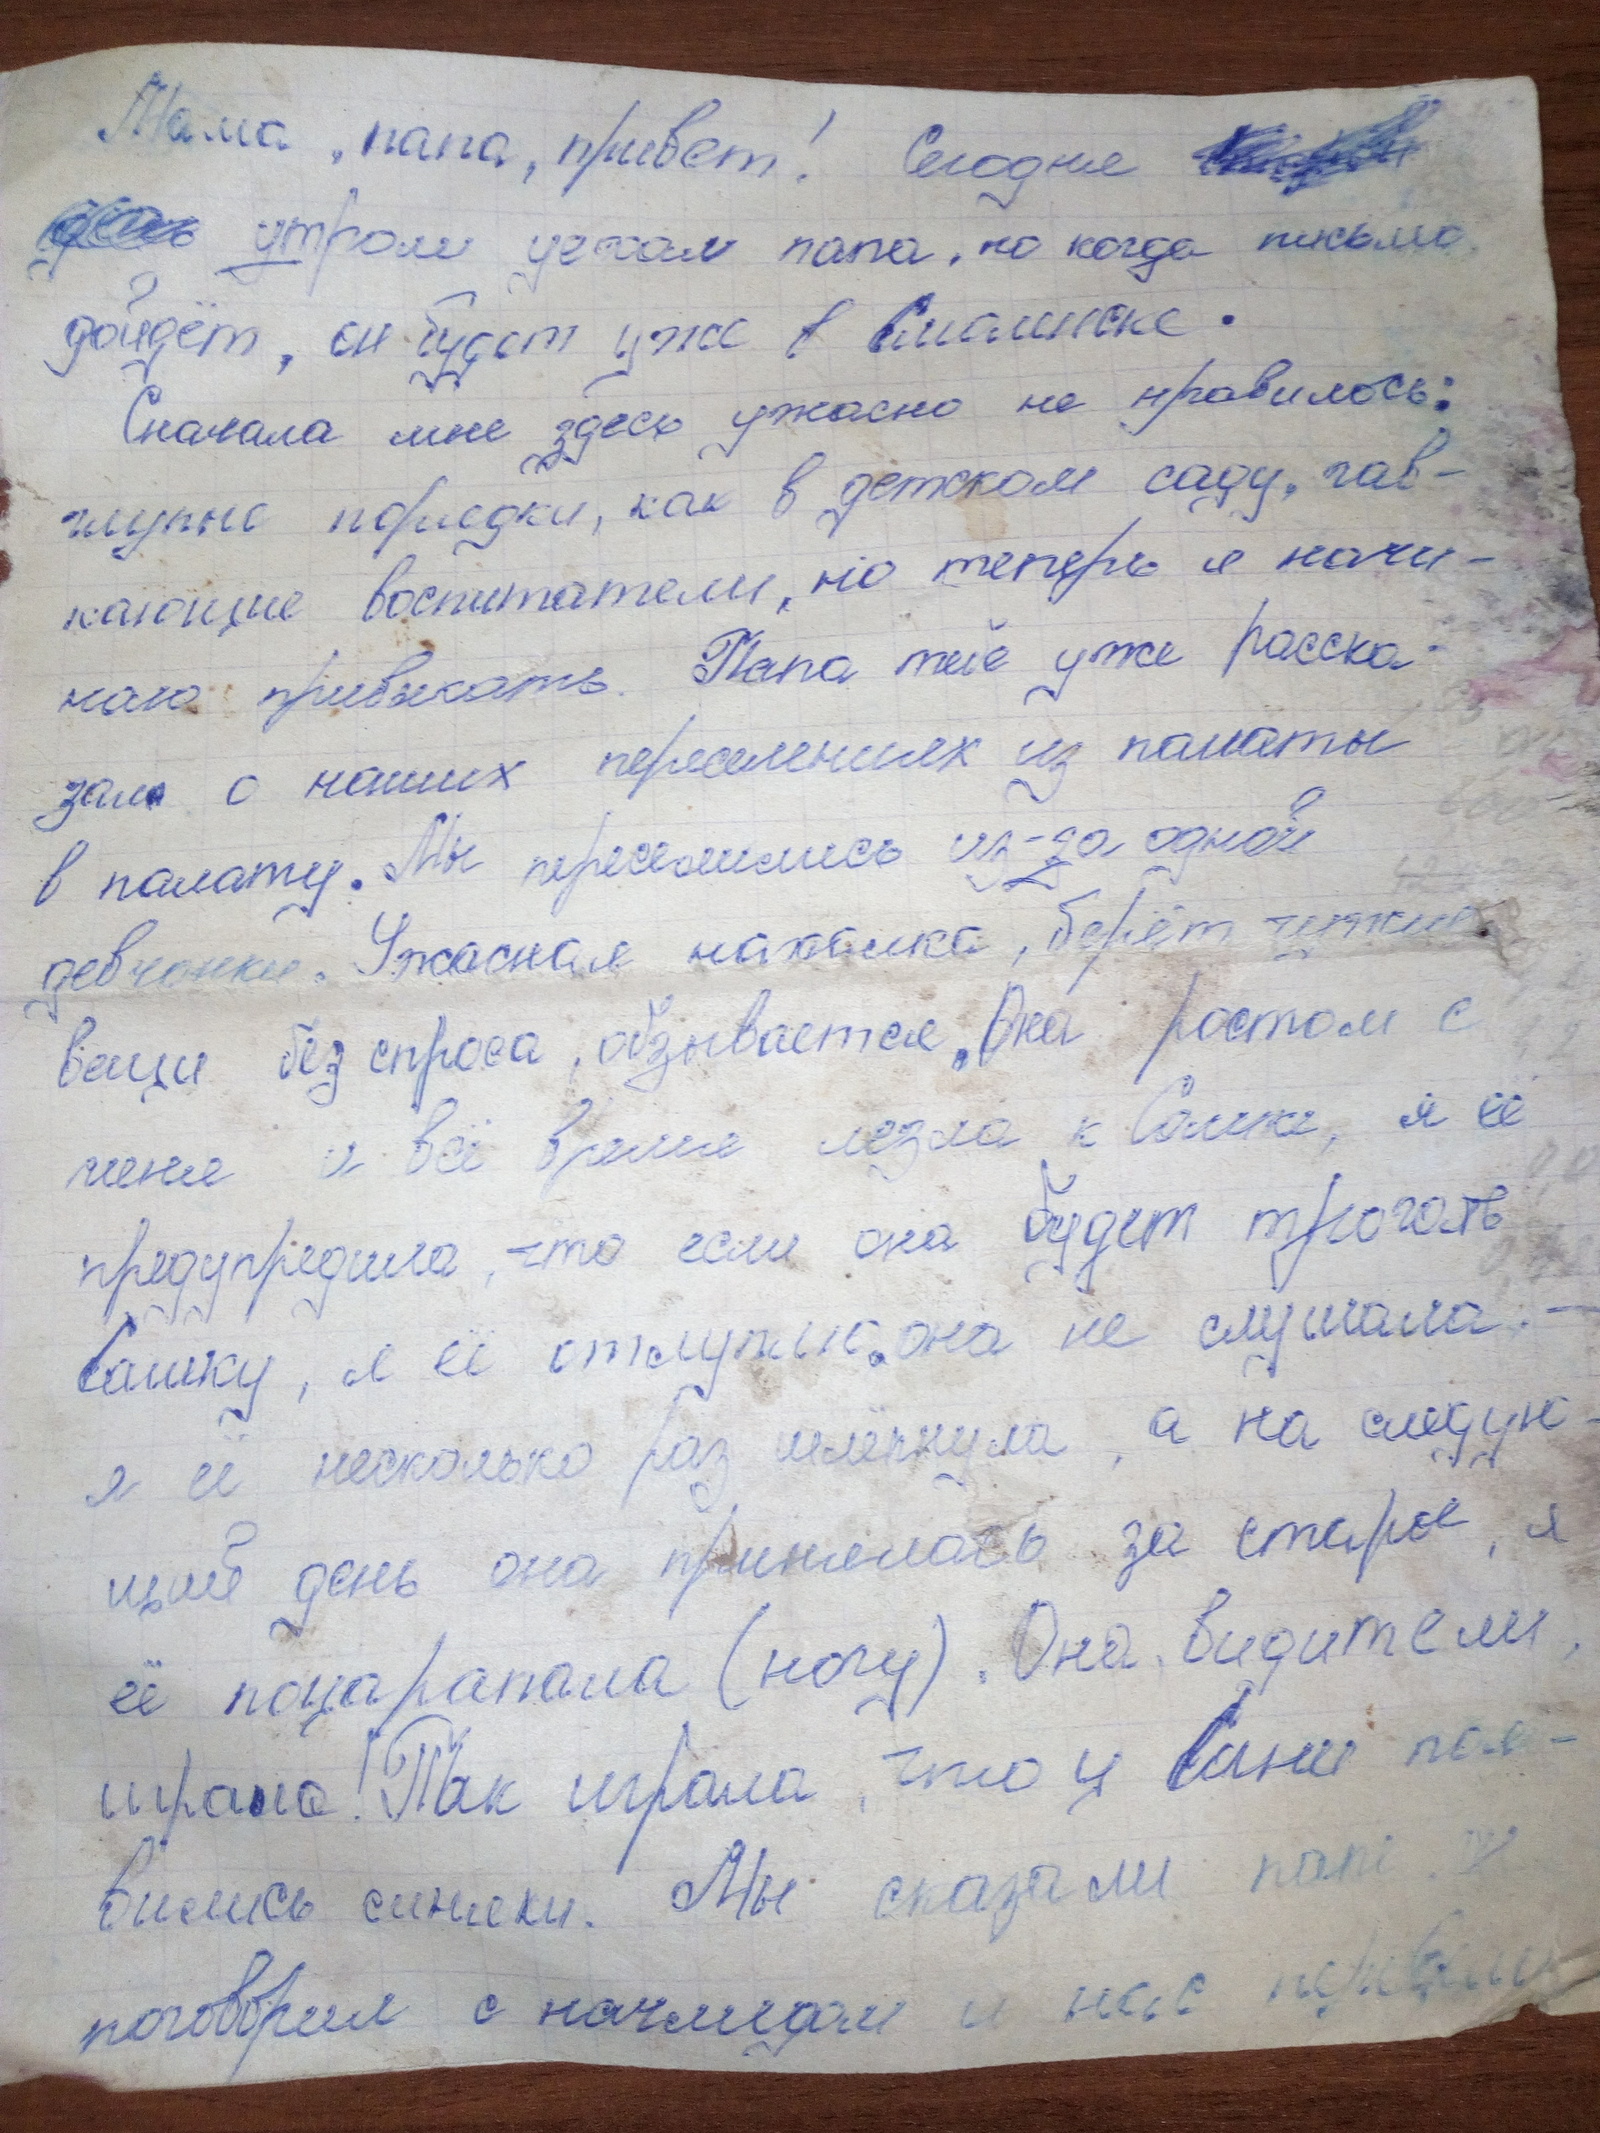 Мама, папа, привет! Сегодня
утром уехал папа, но когда письмо
дойдёт, он будет уже в
Сначала мне здесь ужасно не нравилось:
глупые порядки, как в детском саду, гав-
кающие воспитатели, но теперь я начи-
наю привыкать. Папа тебе уже расска-
зал о наших переселениях из палаты
в палату. Мы переселились из-за одной
девчонки. Ужасная нахалка, берёт чужие
вещи без спроса, обзывается. Она ростом с
меня и всё время лезла к Сашке, я её
предупредила, что если она будет трогать
Сашку, я её отлуплю. она не слушала. —
я её несколько раз шлёпнула, а на следую-
щий день она принялась за старое, я
её поцарапала (ногу). Она, видите ли,
играла! Так играла, что у Сани поя-
вились синяки. Мы сказали папе
поговорил с начмедом и нас